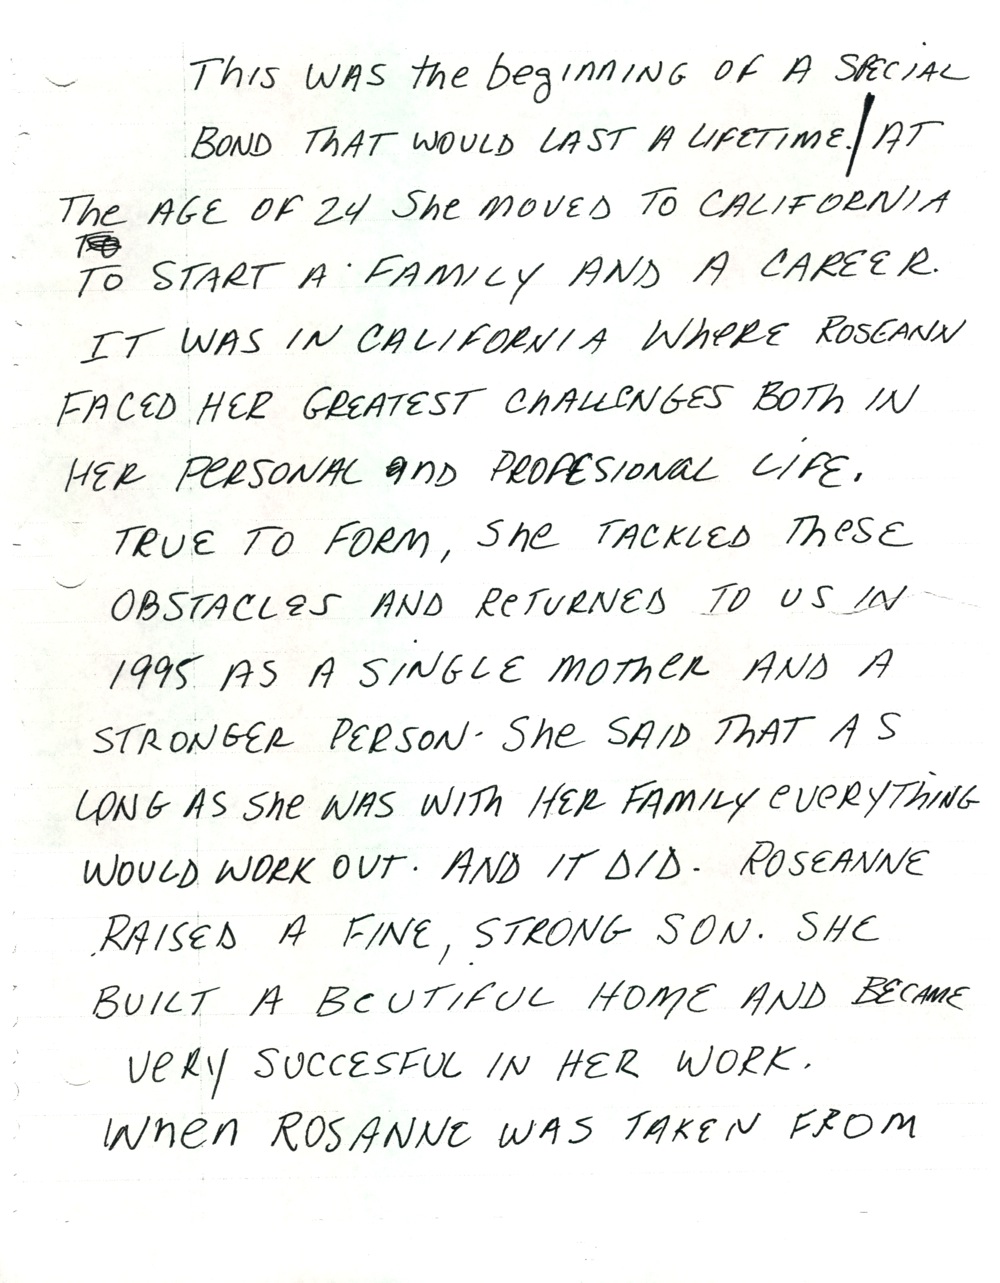 This WAS the beginning OF A SPECIAL
BOND ThAT WOULD LAST A LIFETIME./ AT
The AGE OF 24 She MOVED TO CALIFORNIA
TO START A FAMILY AND A CAREER.
IT WAS IN CALIFORNIA WheRE ROSEANN
FACED HER GREATEST ChALLENGES BOTh IN
HER PERSONAL and PROFESIONAL LiFE.
TRUE TO FORM, She TACKLED TheSE
OBSTACLES AND ReTURNED TO US IN
1995 AS A SiNGLE MOTheR AND A
STRONGER PERSON. She SAID ThAT AS
LONG AS She WAS WITh HER FAMILY eveRYThING
WOULD WORK OUT. AND IT DID. ROSEANNE
RAISED A FINE, STRONG SON. SHE
BUILT A BEUTIFUL HOME AND BECAME
VeRY SUCCESFUL IN HER WORK.
When ROSANNE WAS TAKEN FROM